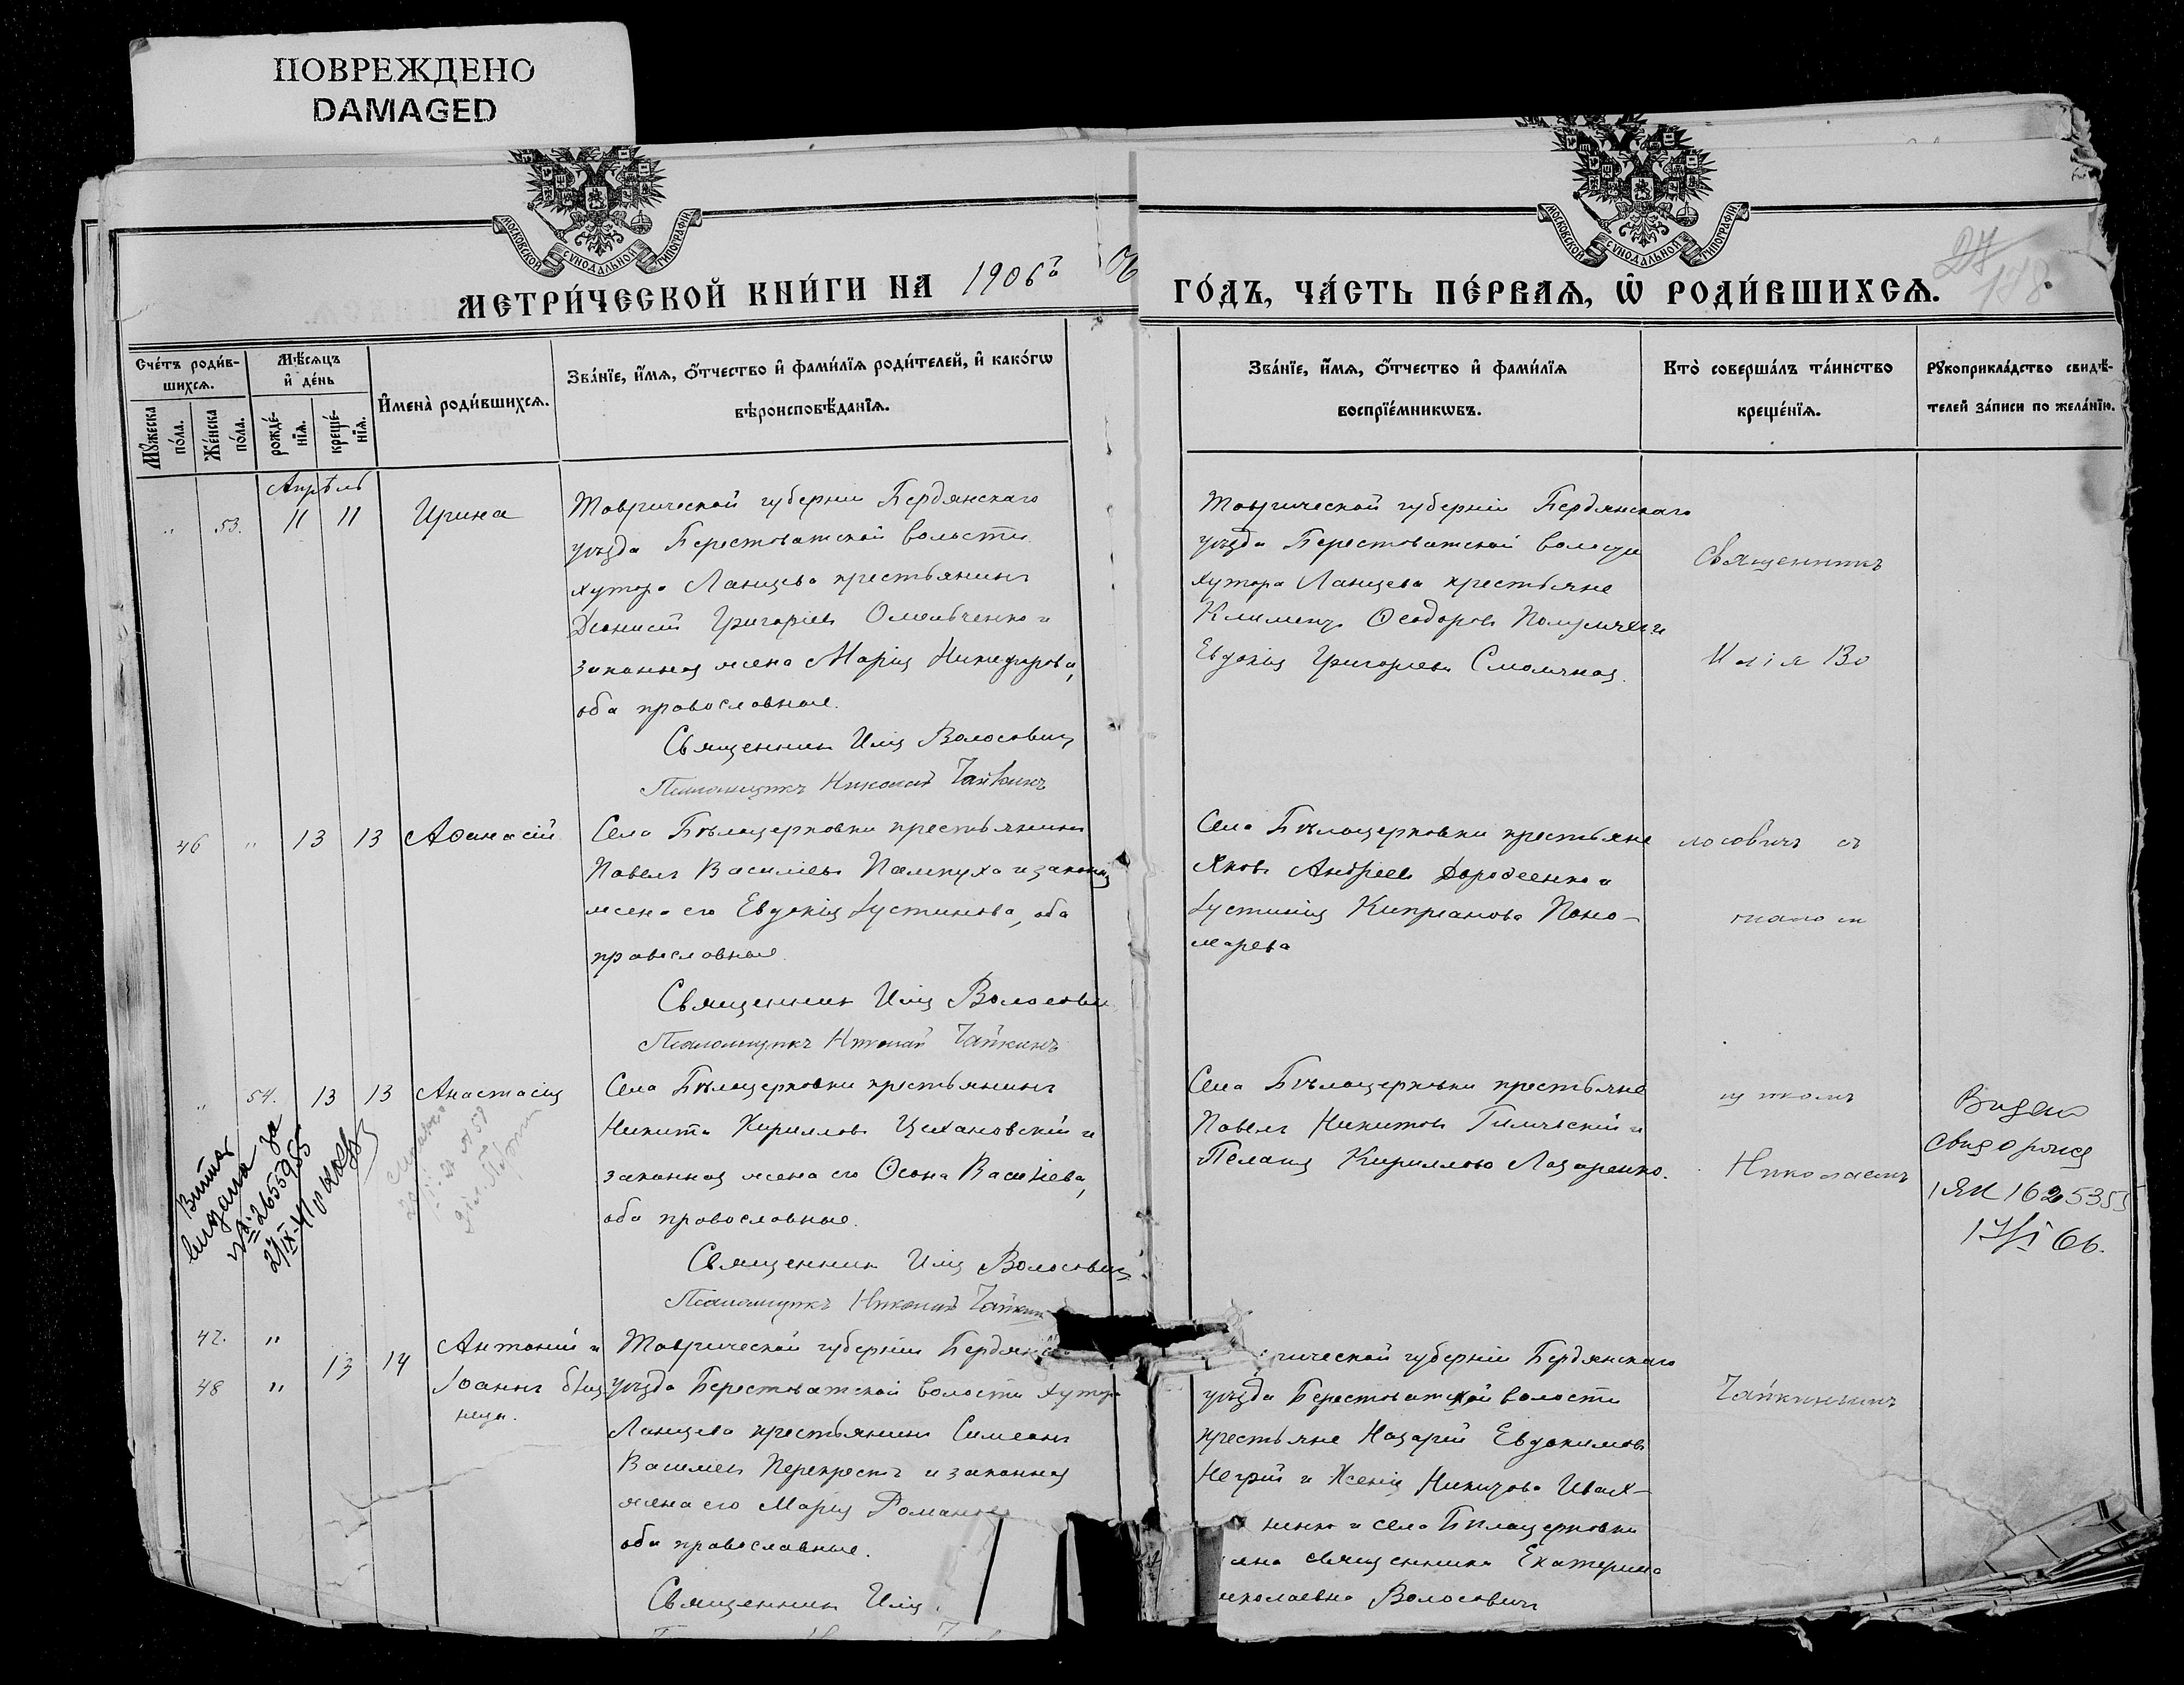 ПОВРЕЖДЕНО
DAMAGED
МОСКОВСКОЙ СѴНОДАЛЬНОЙ ТИПОГРАФІИ
МОСКОВСКОЙ СѴНОДАЛЬНОЙ ТИПОГРАФІИ
МЕТРИ́ЧЕСКОЙ КНИ́ГИ НА 1906 ГО́ДЪ, ЧА́СТЬ ПЕ́РВАѦ, Ѡ҆ РОДИ́ВШИХСѦ.
148.
Сче́тъ роди́в-
шихсѧ.
Мꙋ́жеска по́ла.
Же́нска по́ла.
Мѣ́сѧцъ
и҆ де́нь
рожде́-
нїѧ.
креще́-
нїѧ.
И҆мена̀ роди́вшихсѧ.
Зва́нїе, и҆́мѧ, ѻ҆́тчество и҆ фами́лїѧ роди́телей, и҆ како́гѡ
вѣроисповѣ́данїѧ.
Зва́нїе, и҆́мѧ, ѻ҆́тчество и҆ фами́лїѧ
воспрїе́мникѡвъ.
Кто̀ соверша́лъ та́инство
креще́нїѧ.
Рꙋкоприкла́дство свидѣ́-
телей за́писи по жела́нїю.
Апрѣль
" 53. 11 11 Ирина
Таврической губерніи Бердянскаго
уѣзда Берестоватской волости
хутора Ланцева крестьянинъ
Діонисій Григоріевъ Омельченко и
законная жена Марія Никифорова,
оба православные.
Священникъ Илія Волосовичъ
Псаломщикъ Николай Чайкинъ
Таврической губерніи Бердянскаго
уѣзда Берестоватской волости
хутора Ланцева крестьяне
Климентъ Ѳеодоровъ
Евдокія Григорьева Смолчная.
Священникъ
Илія Во
46 " 13 13 Аѳанасій
Села Бѣлоцерковки крестьянинъ
Павелъ Василіевъ Пампуха и законная
жена его Евдокія Іустинова, оба
православные.
Священникъ Илія Волосовичъ
Псаломщикъ Николай Чайкинъ
Села Бѣлоцерковки крестьяне
Яковъ Андреевъ Дорофеенко и
Іустинія Кипріанова Поно-
марева
лосовичъ съ
псалом
" 54. 13 13 Анастасія
Села Бѣлоцерковки крестьянинъ
Никита Кирилловъ Цехановскій и
законная жена его Ѳеона Васильева,
оба православные.
Священникъ Илія Волосовичъ
Псаломщикъ Николай Чайкин
Села Бѣлоцерковки крестьяне
Павелъ Никитовъ и
Пелагія Кириллова Лазаренко.
щикомъ
Николаемъ
Витяг
видана за
2655955
27/IX-41
Видано
свид о рожд
1 ЯИ 1625355
17/I 66.
47. "
48 " 13 14
Антоній и
Іоаннъ близ
нецы.
Таврической губерніи Бердянс
уѣзда Берестоватской волости хутора
Ланцева крестьянинъ Симеонъ
Василіевъ Перекрестъ и законная
жена его Марія Романова
оба православные.
Священникъ Илія
рической губерніи Бердянскаго
уѣзда Берестоватской волости
крестьяне Назарій Евдокимовъ
Негрій и Ксенія Никитова Ивах-
ненко и села Бѣлоцерковки
жена священника Екатерина
иколаевна Волосовичъ
Чайкинымъ